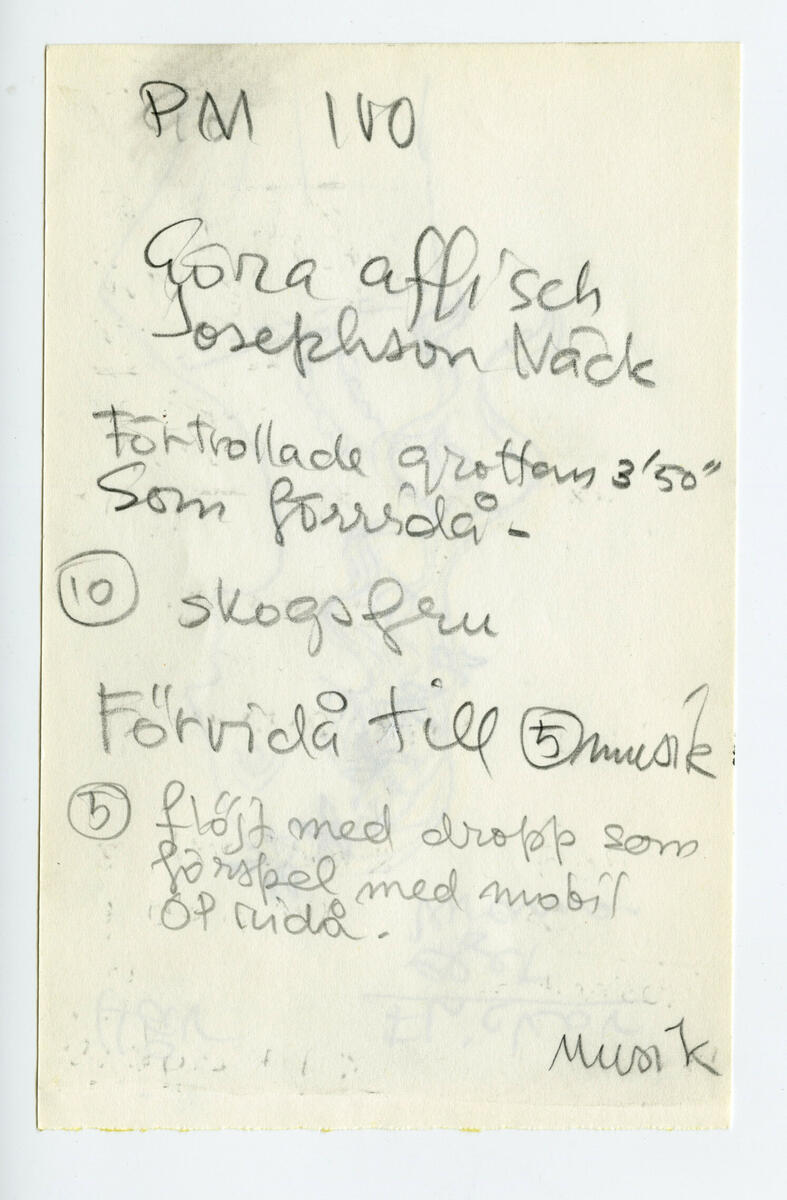 PM IVO
Göra affisch
Josephson Näck
Förtrollade grottan 3'50"
Som förridå -
10 skogsfru
Förridå till 5 musik
5 flöjt med dropp som
förspel med mobil
OP ridå.
Musik